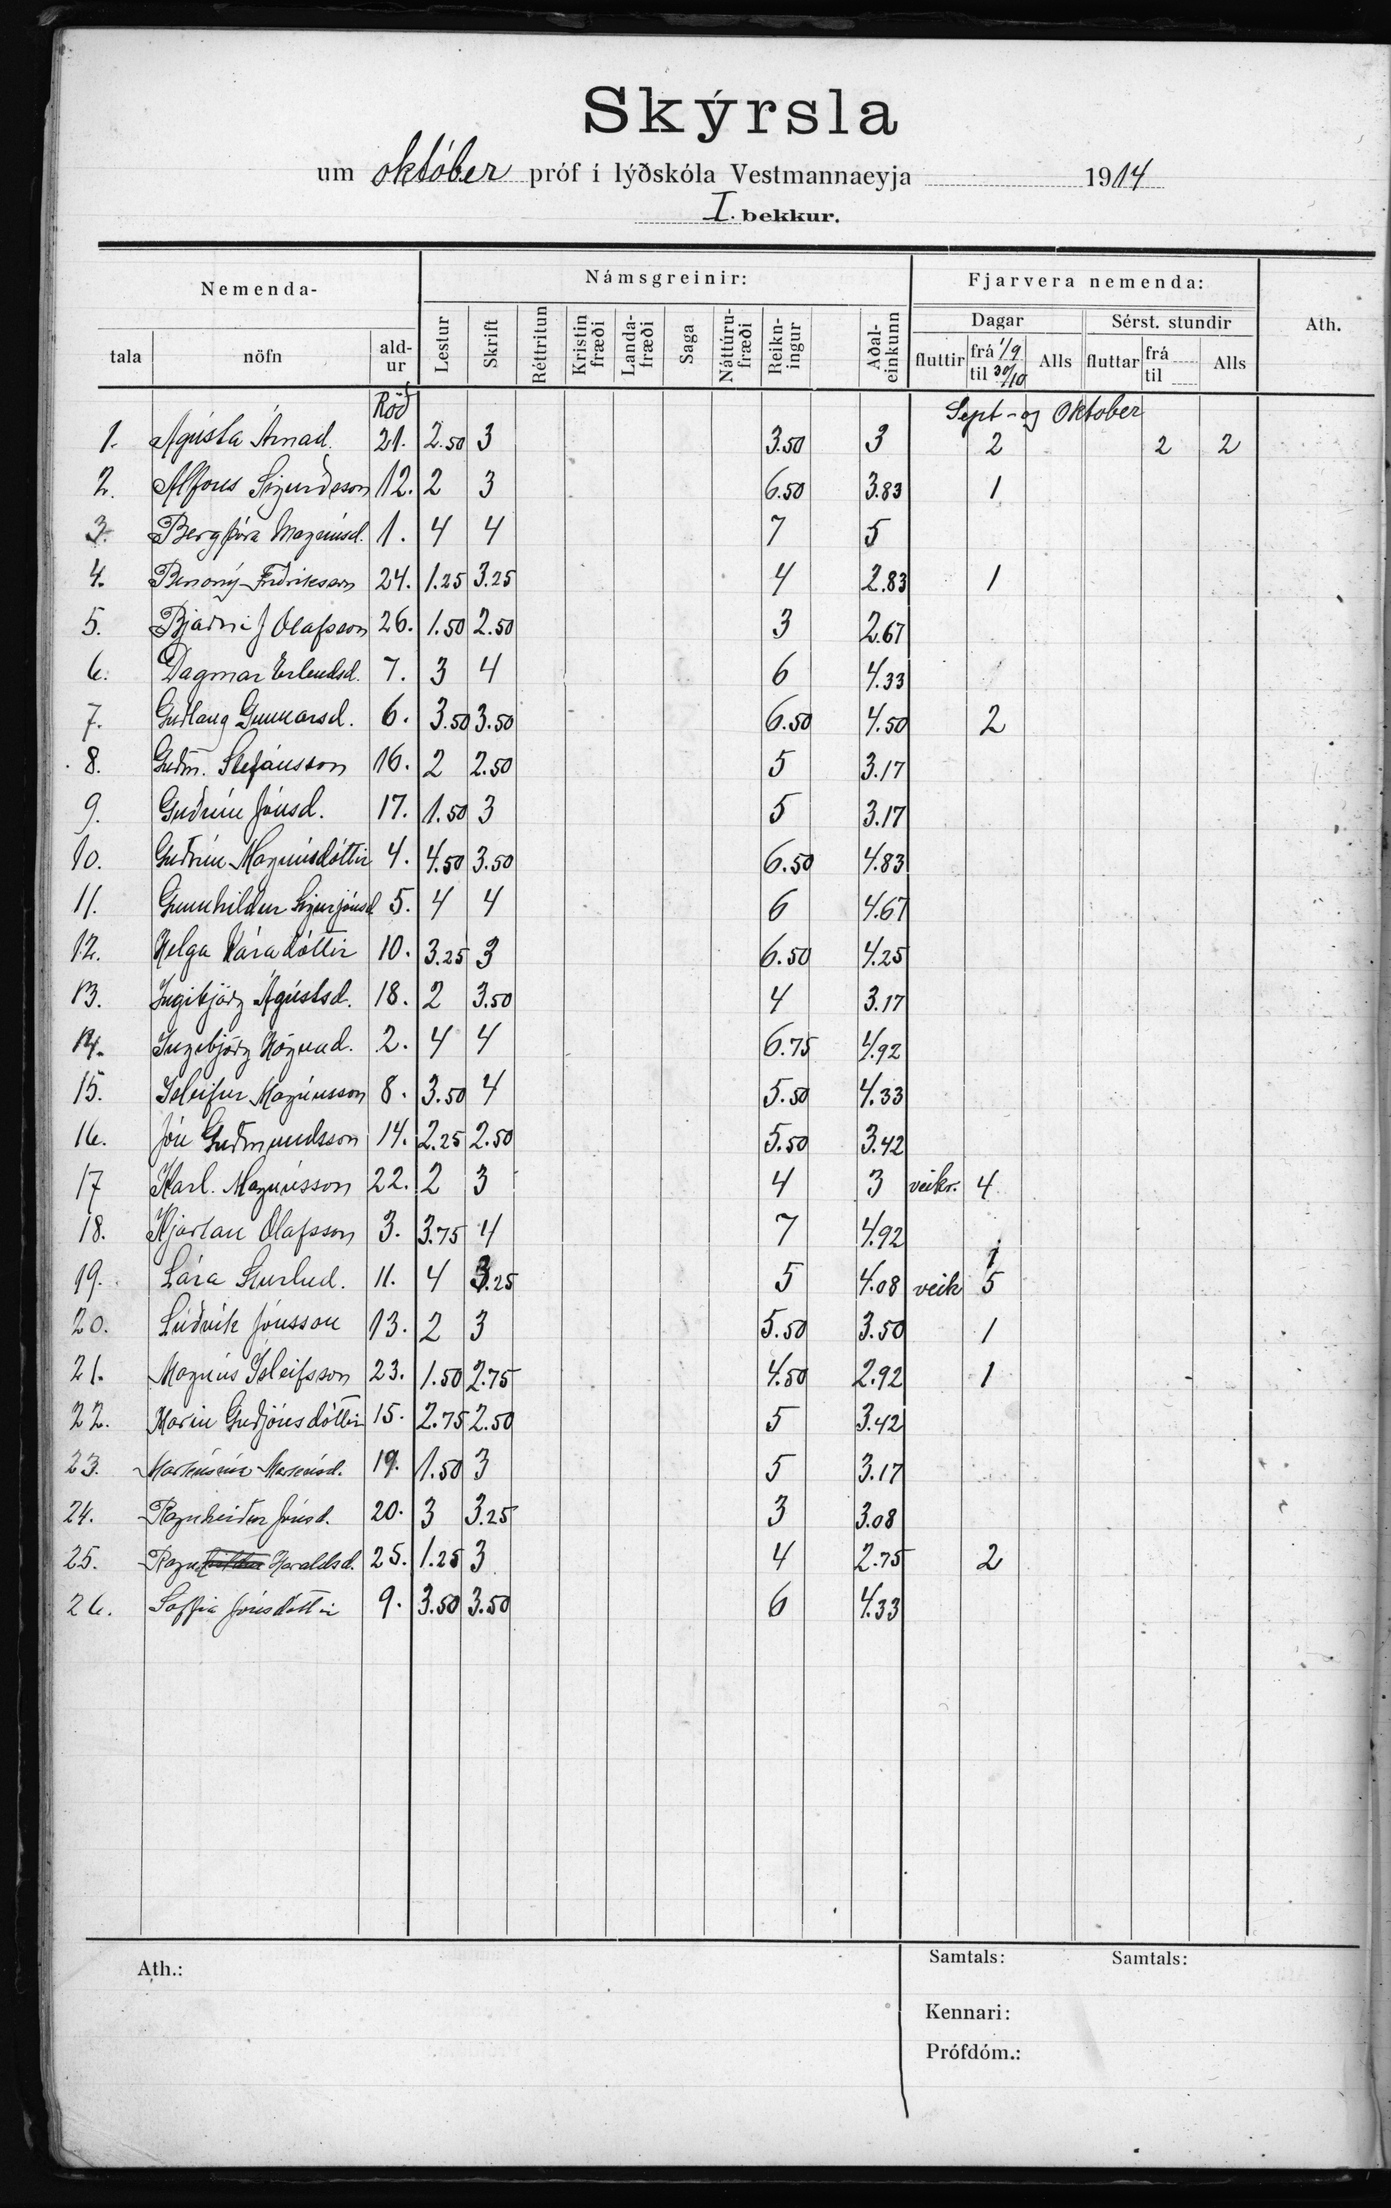 Skýrsla
um október próf í lýðskóla Vestmannaeyja 1914
I. bekkur.
Nemenda- Námsgreinir: Fjarvera nemenda: Ath.
Dagar Sérst. stundir
tala nöfn ald-ur Lestur Skrift Réttritun Kristin fræði Landa-fræði Saga Náttúru-fræði Reikn-ingur Aðal-einkunn fluttir frá 1/9 til 30/10 Alls fluttar frá til Alls
Röð Sept - og Oktober
1. Ágústa Árnad. 21. 2.50 3 3.50 3 2 2 2
2. Alfons Sigurðsson 12. 2 3 6.50 3.83 1
3. Bergþóra Magnúsd. 1. 4 4 7 5
4. Benoný Friðriksson 24. 1.25 3.25 4 2.83 1
5. Bjarni J Olafsson 26. 1.50 2.50 3 2.67
6. Dagmar Erlendsd. 7. 3 4 6 4.33
7. Guðlaug Gunnarsd. 6. 3.50 3.50 6.50 4.50 2
8. Guðm. Stefánsson 16. 2 2.50 5 3.17
9. Guðrún Jónsd. 17. 1.50 3 5 3.17
10. Guðrún Magnúsdóttir 4. 4.50 3.50 6.50 4.83
11. Gunnhildur Sigurjónsd. 5. 4 4 6 4.67
12. Helga Káradóttir 10. 3.25 3 6.50 4.25
13. Ingibjörg Ágústsd. 18. 2 3.50 4 3.17
14. Ingibjörg Högnad. 2. 4 4 6.75 4.92
15. Ísleifur Magnússon 8. 3.50 4 5.50 4.33
16. Jón Guðmundsson 14. 2.25 2.50 5.50 3.42
17 Karl Magnússon 22. 2 3 4 3 veikr. 4
18. Kjartan Olafsson 3. 3.75 4 7 4.92 1
19. Lára Sturlud. 11. 4 3.25 5 4.08 veik 5
20. Lúðvík Jónsson 13. 2 3 5.50 3.50 1
21. Magnús Ísleifsson 23. 1.50 2.75 4.50 2.92 1
22. Marin Guðjónsdóttir 15. 2.75 2.50 5 3.42
23. 19. 1.50 3 5 3.17
24. Ragnheiður Jónsd. 20. 3 3.25 3 3.08
25. Ragnhildur Haraldsd. 25. 1.25 3 4 2.75 2
26. Soffia Jónsdóttir 9. 3.50 3.50 6 4.33
Ath.: Samtals: Samtals:
Kennari:
Prófdóm.: